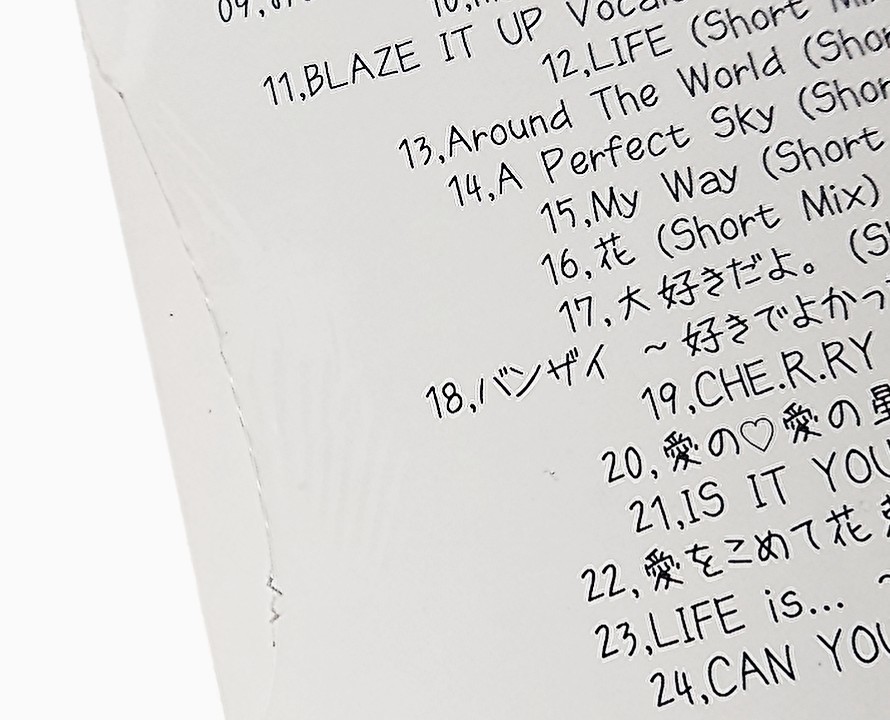 11,BLAZE IT UP
12,LIFE (Short
13,Around The World
14,A Perfect Sky
15,My Way (Short
16,花 (Short Mix)
17,大好きだよ。
18,バンザイ ～好きでよかっ
19,CHE.R.RY
20,愛の♡愛の星
21,IS IT YOU
22,愛をこめて花
23,LIFE is... ~
24,CAN YOU